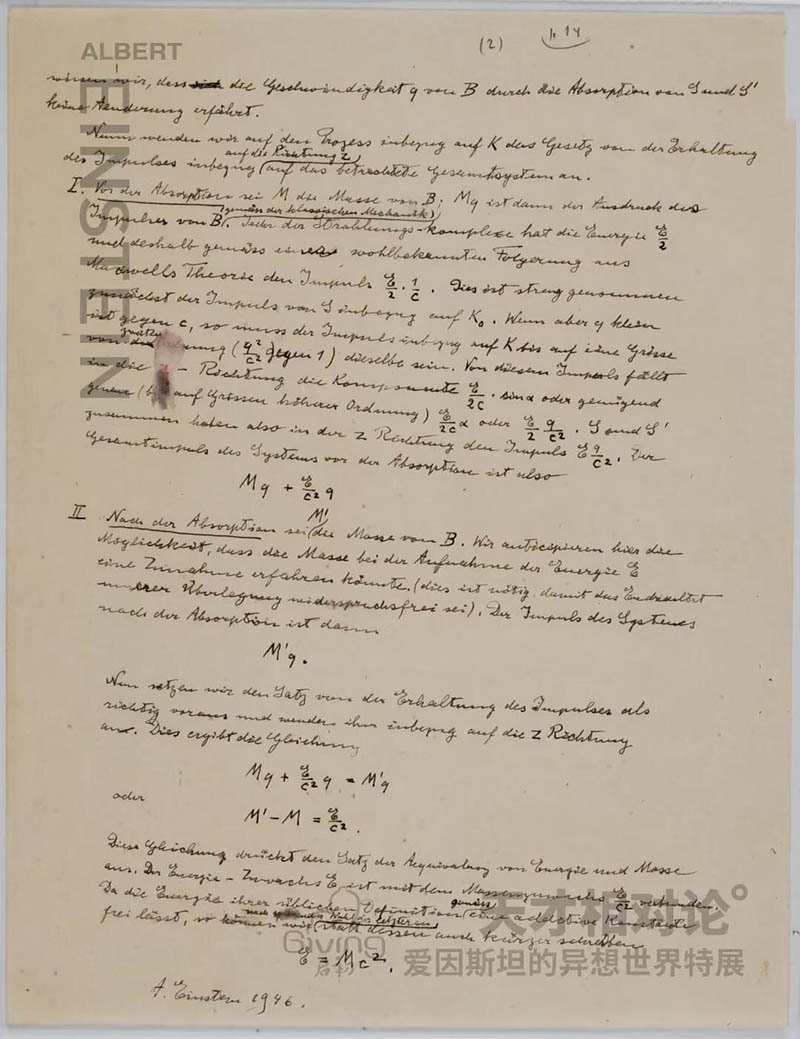 (2)
ALBERT
EINSTEIN
wissen wir, dass die Geschwindigkeit q von B durch die Absorption von S und S'
keine Aenderung erfährt.
Nun wenden wir auf den Prozess inbezug auf K das Gesetz von der Erhaltung
des Impulses inbezug auf die Richtung z auf das betrachtete Gesamtsystem an.
I. Vor der Absorption sei M die Masse von B; Mq ist dann der Ausdruck des
Impulses von B (gemäss der klassischen Mechanik). Jeder der Strahlungs-komplexe hat die Energie E/2
und deshalb gemäss einer wohlbekannten Folgerung aus
Maxwells Theorie den Impuls E/2 · 1/c. Dies ist streng genommen
zunächst der Impuls von S inbezug auf K₀. Wenn aber q klein
ist gegen c, so muss der Impuls inbezug auf K bis auf eine Grösse
von zweiter (q²/c² gegen 1) dieselbe sein. Von diesem Impuls fällt
in die - Richtung die Komponente E/2c · sin α oder genügend
genau (bis auf Grössen höherer Ordnung) E/2c α oder E/2 · q/c². S und S'
zusammen haben also in der z Richtung den Impuls E q/c². Der
Gesamtimpuls des Systems vor der Absorption ist also
Mq + E/c² q
II Nach der Absorption sei M' die Masse von B. Wir anticipieren hier die
Möglichkeit, dass die Masse bei der Aufnahme der Energie E
eine Zunahme erfahren könnte. (dies ist nötig, damit das Endresultat
unserer Überlegung widerspruchsfrei sei). Der Impuls des Systemes
nach der Absorption ist dann
M'q.
Nun setzen wir den Satz von der Erhaltung des Impulses als
richtig voraus und wenden ihn inbezug auf die z Richtung
an. Dies ergibt die Gleichung
Mq + E/c² q = M'q
oder
M' - M = E/c².
Diese Gleichung drückt den Satz der Aequivalenz von Energie und Masse
aus. Der Energie - Zuwachs E ist mit dem Massenzuwachs E/c² verbunden.
Da die Energie ihrer üblichen Definition gemäss eine additive Konstante
frei lässt, so können wir nach der letzteren statt dessen auch kürzer schreiben
E = Mc².
A. Einstein 1946.
天才相对论°
Giving
爱因斯坦的异想世界特展